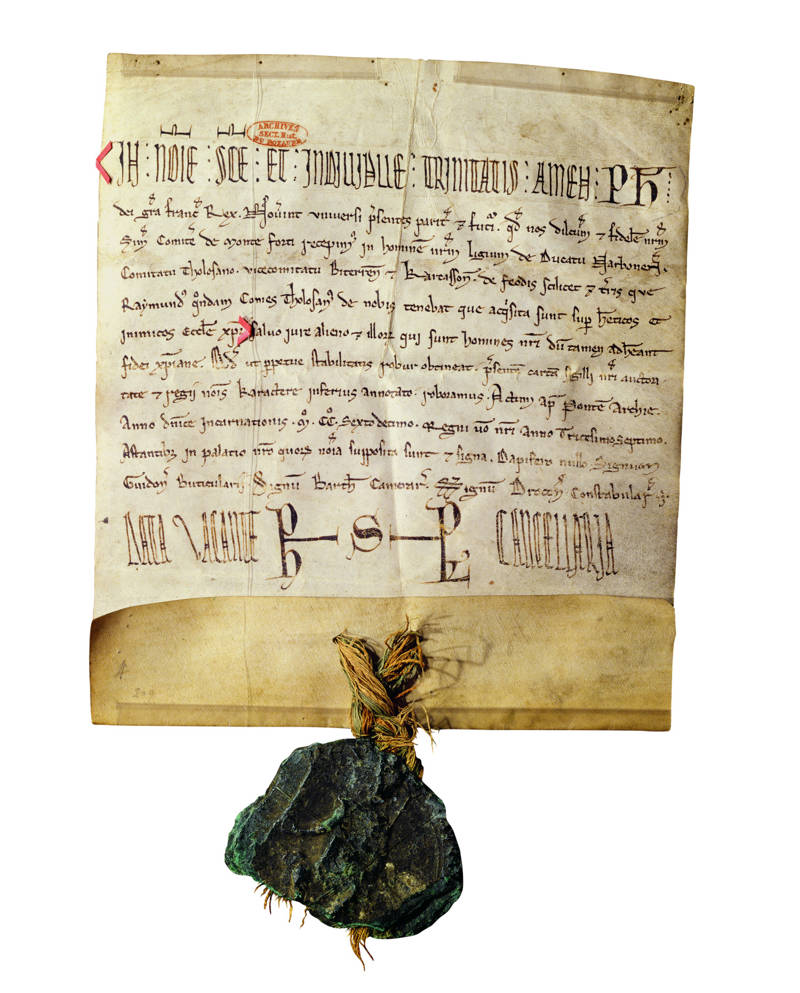 ARCHIVES
SECT. HIST.
DU ROYAUME
IN : NOIE : SCE : ET : INDIVIDUE : TRINITATIS : AMEN : PH :
dei gra franc Rex. Noverint universi psentes parit 7 futi. qd nos dilcum 7 fidele nrm
Sim Comite de Monte forti recepim in homine nrm ligium de Ducatu Narbonen.
Comitatu Tholosano. vicecomitatu Biterren 7 Karcasson. de feodis scilicet 7 tris que
Raymund qndam Comes Tholosan de nobis tenebat que acqisita sunt sup heticos et
inimicos Eccle xpi. Salvo iure alieno 7 illor qui sunt homines nri dum tamen adheant
fidei xpiane. Qd ut ppetue stabilitatis robur obtineat. psente carta sigilli nri auctori
tate 7 regii nois Karactere inferius annotato. roboramus. Actum ap Ponte Archie.
Anno dnice Incarnationis. M. CC. Sextodecimo. Regni vo nri Anno Tricesimo Septimo.
Astantibz in palatio nro quor noia supposita sunt 7 signa. Dapifero nullo. Signum
Guidon Buticularii. Signum Barth Camerar. Signum Droc Constabular.
DATA VACANTE PH S PL CANCELLARIA